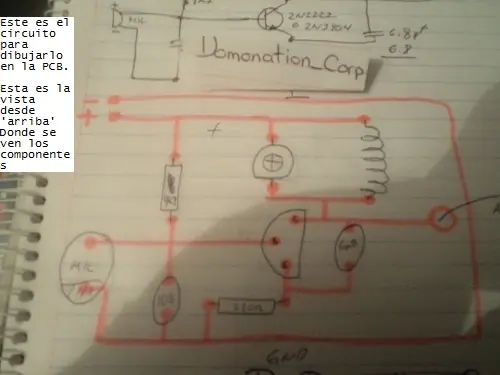 Este es el
circuito
para
dibujarlo
en la PCB.
Esta es la
vista
desde
'arriba'
Donde se
ven los
componente
s
MIC
2N2222
o 2N3904
6.8pf
6.8
Domonation_Corp
- 
+
+
MIC
103
6p8
GND